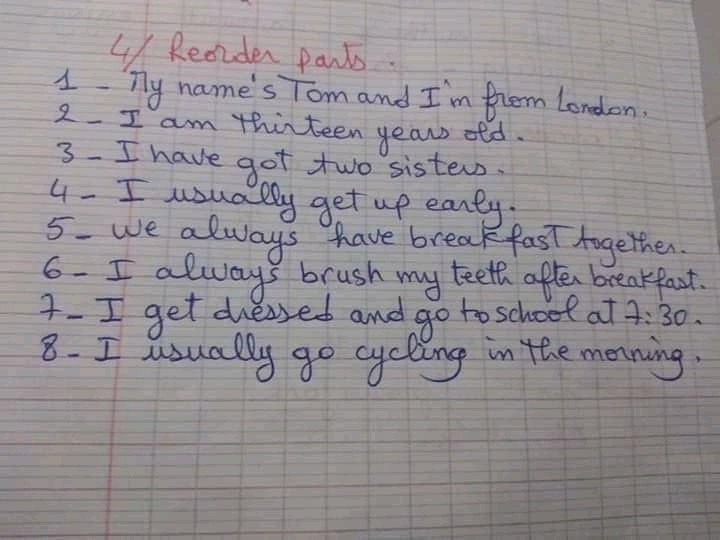 4/ Reorder parts.
1 - My name's Tom and I'm from London.
2 - I am thirteen years old.
3 - I have got two sisters.
4 - I usually get up early.
5 - We always have breakfast together.
6 - I always brush my teeth after breakfast.
7 - I get dressed and go to school at 7:30.
8 - I usually go cycling in the morning.